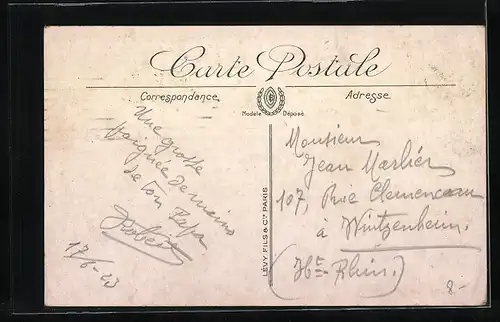 Carte Postale
Correspondance
Adresse
Modèle Déposé
Une grosse
poignée de mains
de ton Papa
Robert
17/6-23
LÉVY FILS & Cie PARIS
Monsieur
Jean Marliér
107, Rue Clemenceau
à Wintzenheim.
(Ht-Rhin.)
8.-